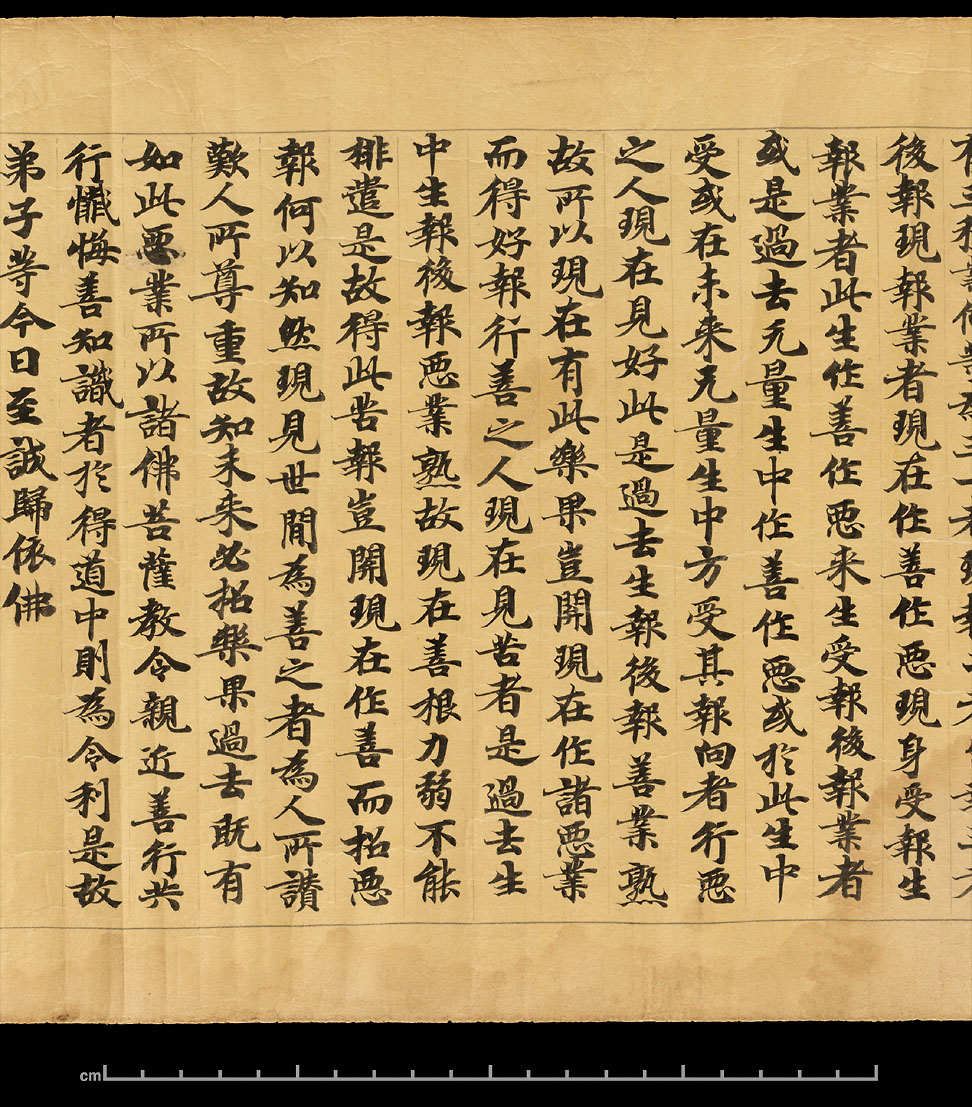 後報現報業者現在作善作悪現身受報生
報業者此生作善作悪来生受報後報業者
或是過去无量生中作善作悪或於此生中
受或在未来无量生中方受其報向者行悪
之人現在見好此是過去生報後報善業熟
故所以現在有此樂果豈開現在作諸悪業
而得好報行善之人現在見苦者是過去生
中生報後報悪業熟故現在善根力弱不能
排遣是故得此苦報豈開現在作善而招悪
報何以知然現見世間為善之者為人所讃
歎人所尊重故知未来必招樂果過去既有
如此悪業所以諸佛菩薩教令親近善行共
行懺悔善知識者於得道中則為令利是故
弟子等今日至誠歸依佛
cm